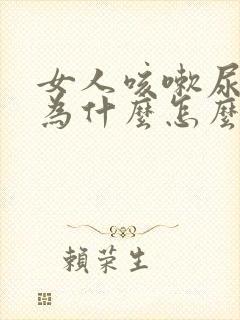 女人咳嗽尿
為什麼怎麼
賴荣生